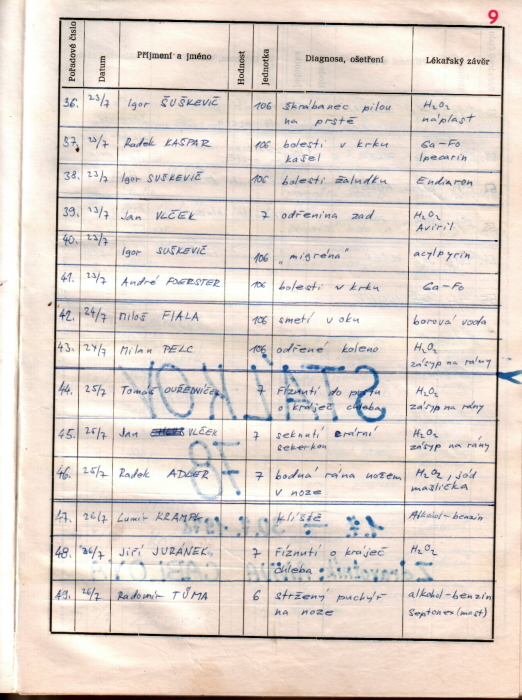 9
Pořadové číslo Datum Příjmení a jméno Hodnost Jednotka Diagnosa, ošetření Lékařský závěr
36. 23/7 Igor ŠUŠKEVIČ 106 škrábanec pilou H2O2
na prstě náplast
37. 23/7 Radek KAŠPAR 106 bolesti v krku Ga-Fo
kašel Ipecarin
38. 23/7 Igor SUŠKEVIČ 106 bolesti žaludku Endiaron
39. 23/7 Jan VLČEK 7 odřenina zad H2O2
Aviril
40. 23/7 Igor SUŠKEVIČ 106 „migréna" acylpyrin
41. 23/7 André FOERSTER 106 bolesti v krku Ga-Fo
42. 24/7 Miloš FIALA 106 smetí v oku borová voda
43. 24/7 Milan PELC 106 odřené koleno H2O2
zásyp na rány
44. 25/7 Tomáš OUŘEDNÍČEK 7 říznutí do prstu H2O2
o kráječ chleba zásyp na rány
45. 25/7 Jan VLČEK 7 seknutí erární H2O2
sekerkou zásyp na rány
46. 25/7 Radek ADLER 7 bodná rána nožem H2O2, jód
v noze mastička
47. 26/7 Lumír KRAMPL klíště Alkohol-benzin
48. 26/7 Jiří JURÁNEK 7 říznutí o kráječ H2O2
chleba
49. 26/7 Radomír TŮMA 6 stržený puchýř alkohol-benzin
na noze Septonex (mast)